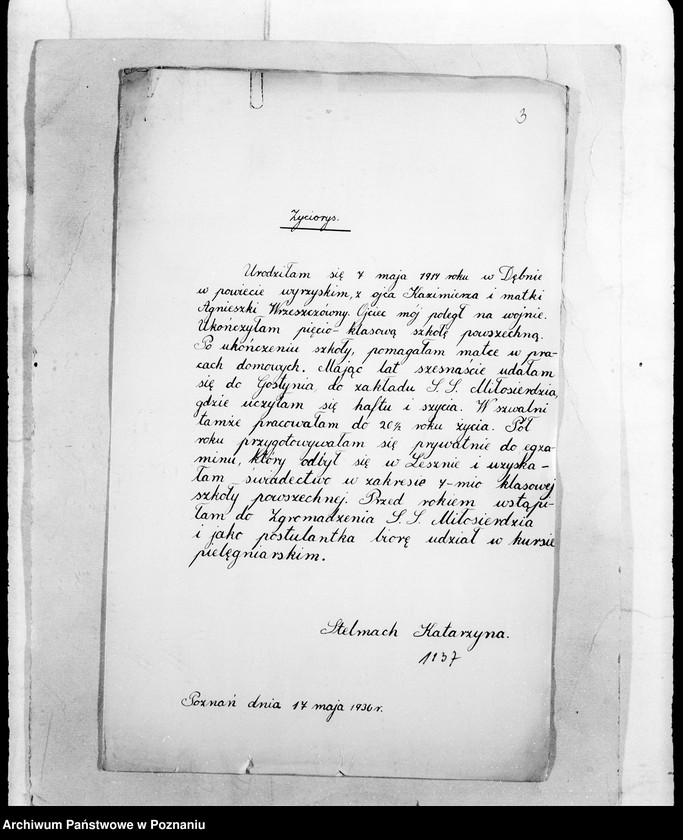 3
Życiorys.
Urodziłam się 7 maja 1914 roku w Dębnie
w powiecie wyrzyskim, z ojca Kazimierza i matki
Agnieszki Wrzeszczówny. Ojciec mój poległ na wojnie.
Ukończyłam pięcio-klasową szkołę powszechną.
Po ukończeniu szkoły, pomagałam matce w pra-
cach domowych. Mając lat szesnaście udałam
się do Gostynia, do zakładu S. S. Miłosierdzia,
gdzie uczyłam się haftu i szycia. W szwalni
tamże pracowałam do 20½ roku życia. Pół
roku przygotowywałam się prywatnie do egza-
minu, który odbył się w Lesznie i uzyska-
łam świadectwo w zakresie 7-mio klasowej
szkoły powszechnej. Przed rokiem wstąpi-
łam do Zgromadzenia S. S. Miłosierdzia
i jako postulantka biorę udział w kursie
pielęgniarskim.
Stelmach Katarzyna.
1137
Poznań dnia 17 maja 1936 r.
Archiwum Państwowe w Poznaniu